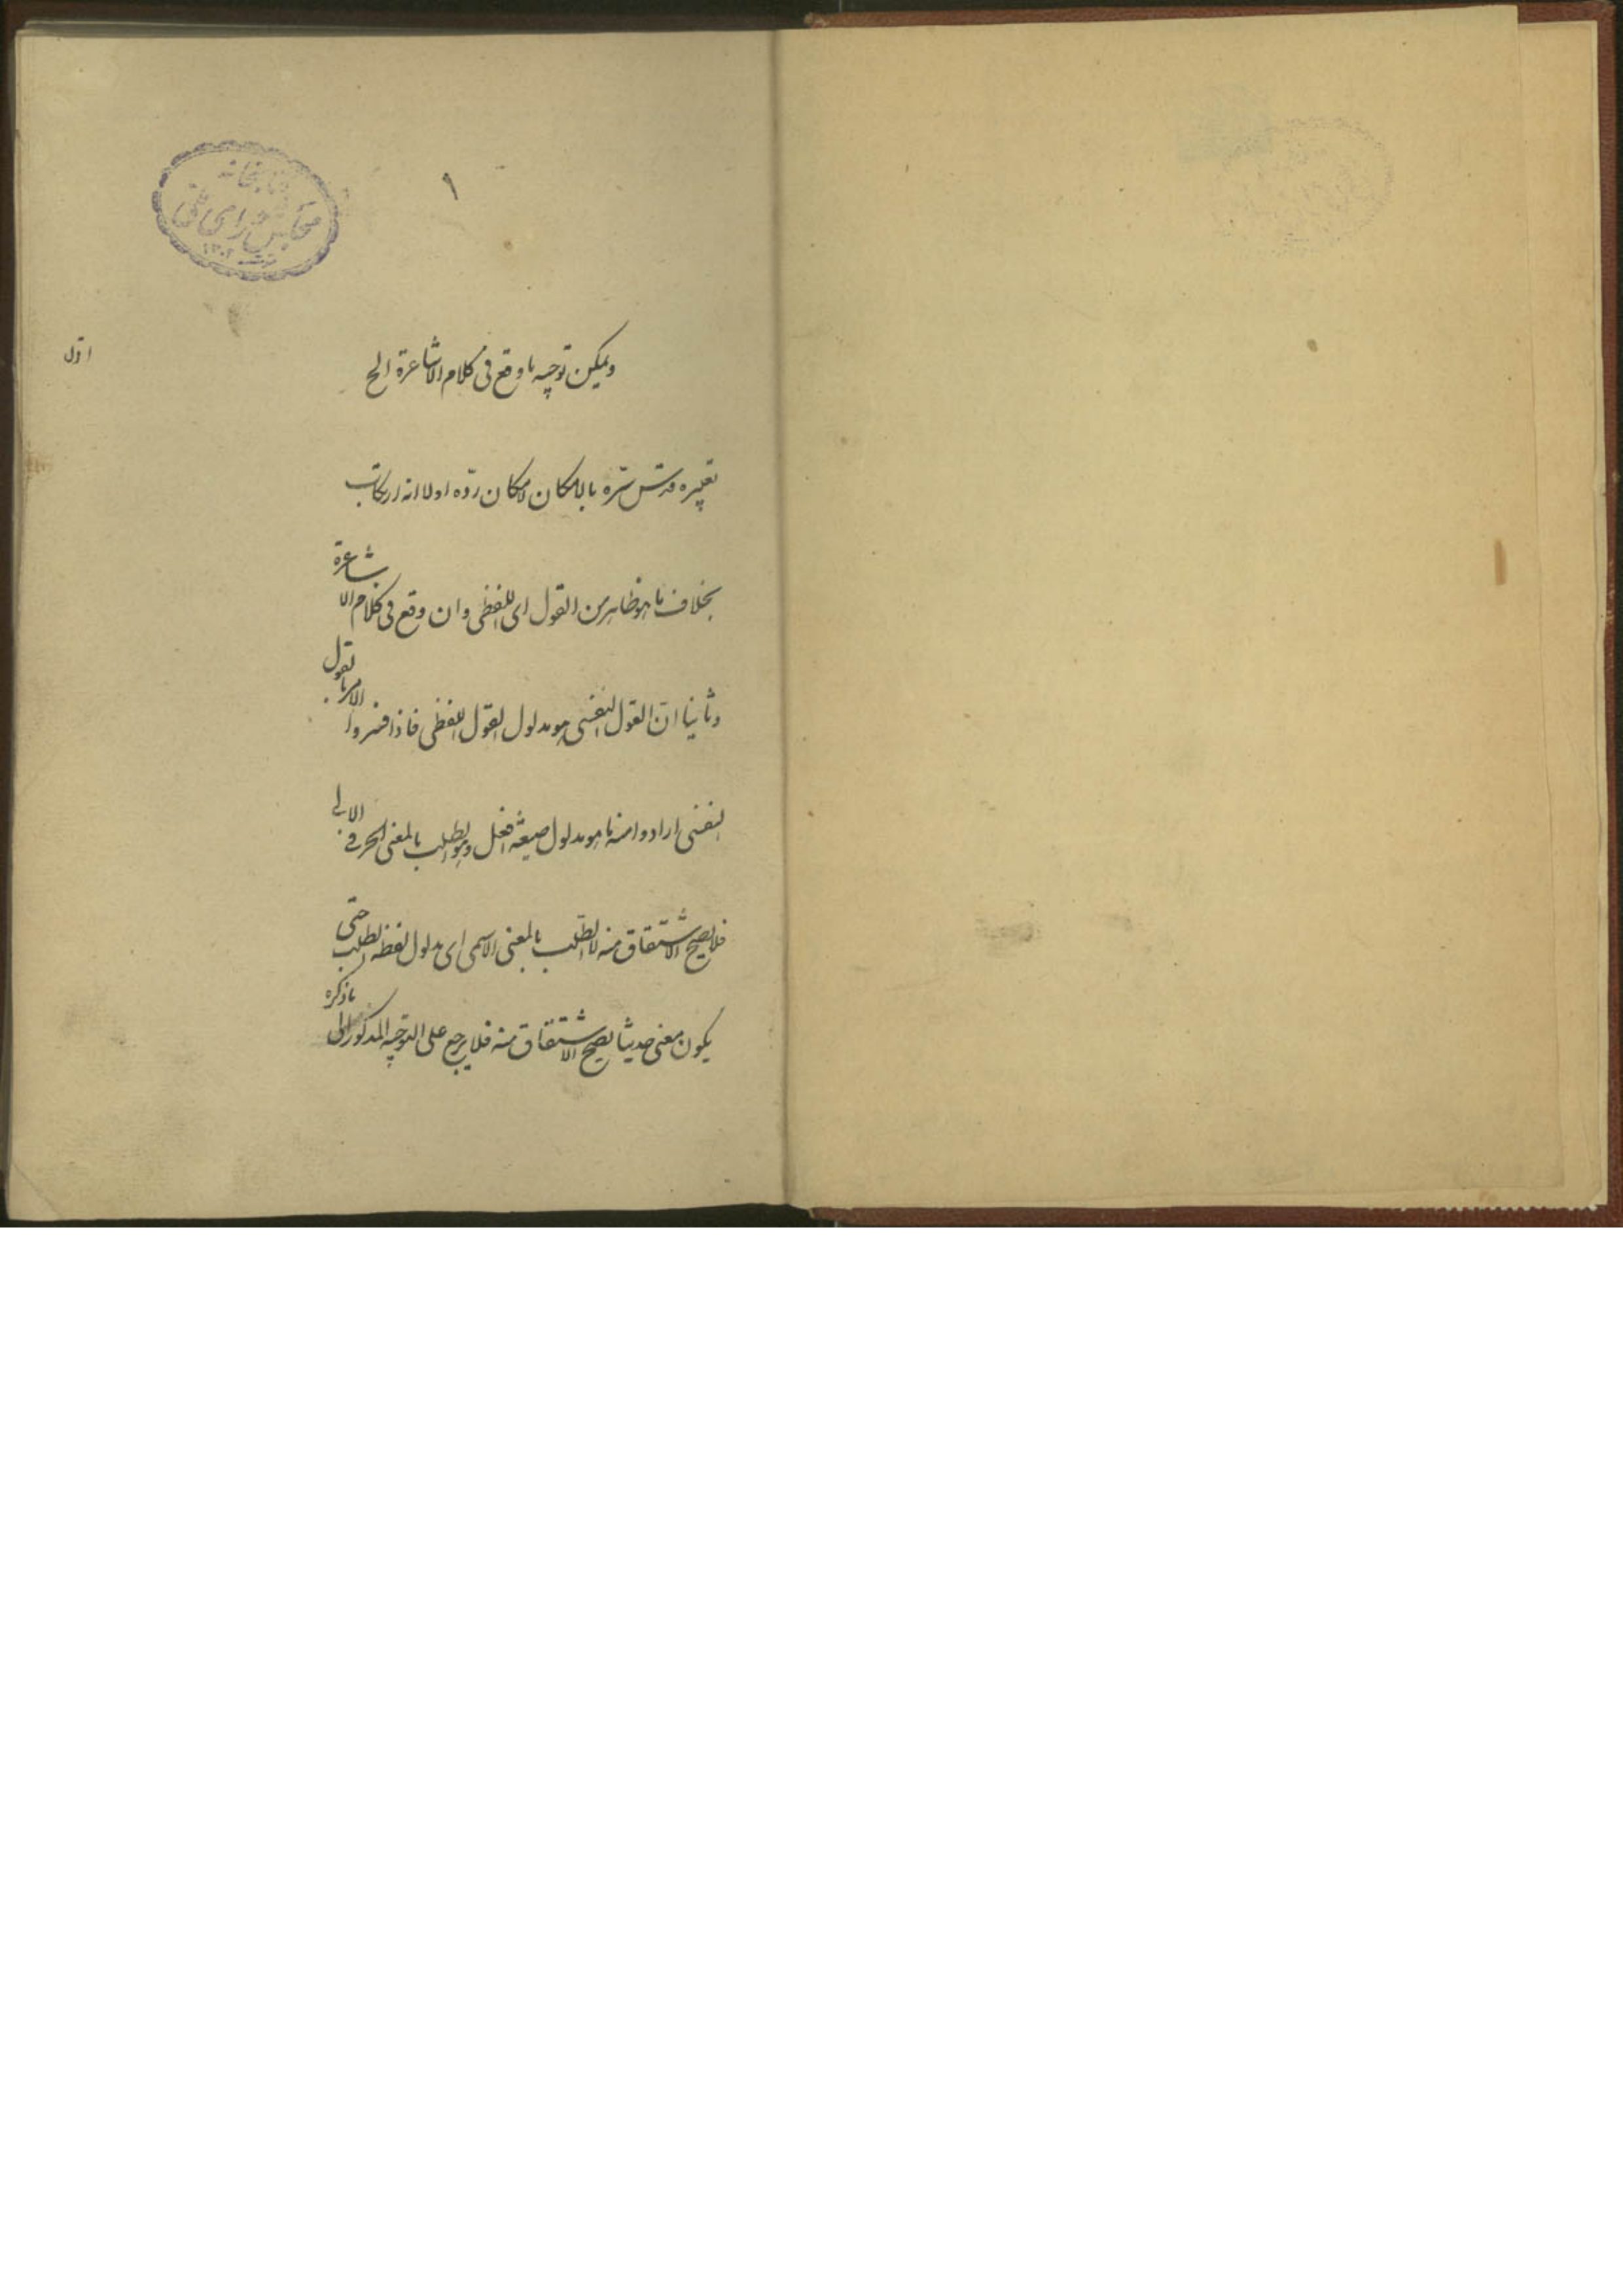 ١
كتابخانه
مجلس شورای ملی
اول
ويمكن توجيه ما وقع فى كلام الاشاعرة الخ
تعبيره قدس سره بالامكان لامكان رده اولا انه ارتكاب
بخلاف ما هو ظاهر من القول اى اللفظى وان وقع فى كلام الاشاعرة
وثانيا ان القول النفسى هو مدلول القول اللفظى فاذا فسروا الامر بالقول
النفسى ارادوا منه ما هو مدلول صيغة افعل وهو الطلب بالمعنى الحرفى الالى
فلا يصح الاشتقاق منه لا الطلب بالمعنى الاسمى اى مدلول لفظ الطلب حتى
يكون معنى حديثا يصح الاشتقاق منه فلا يرجع على التوجيه المذكور الى ما ذكره